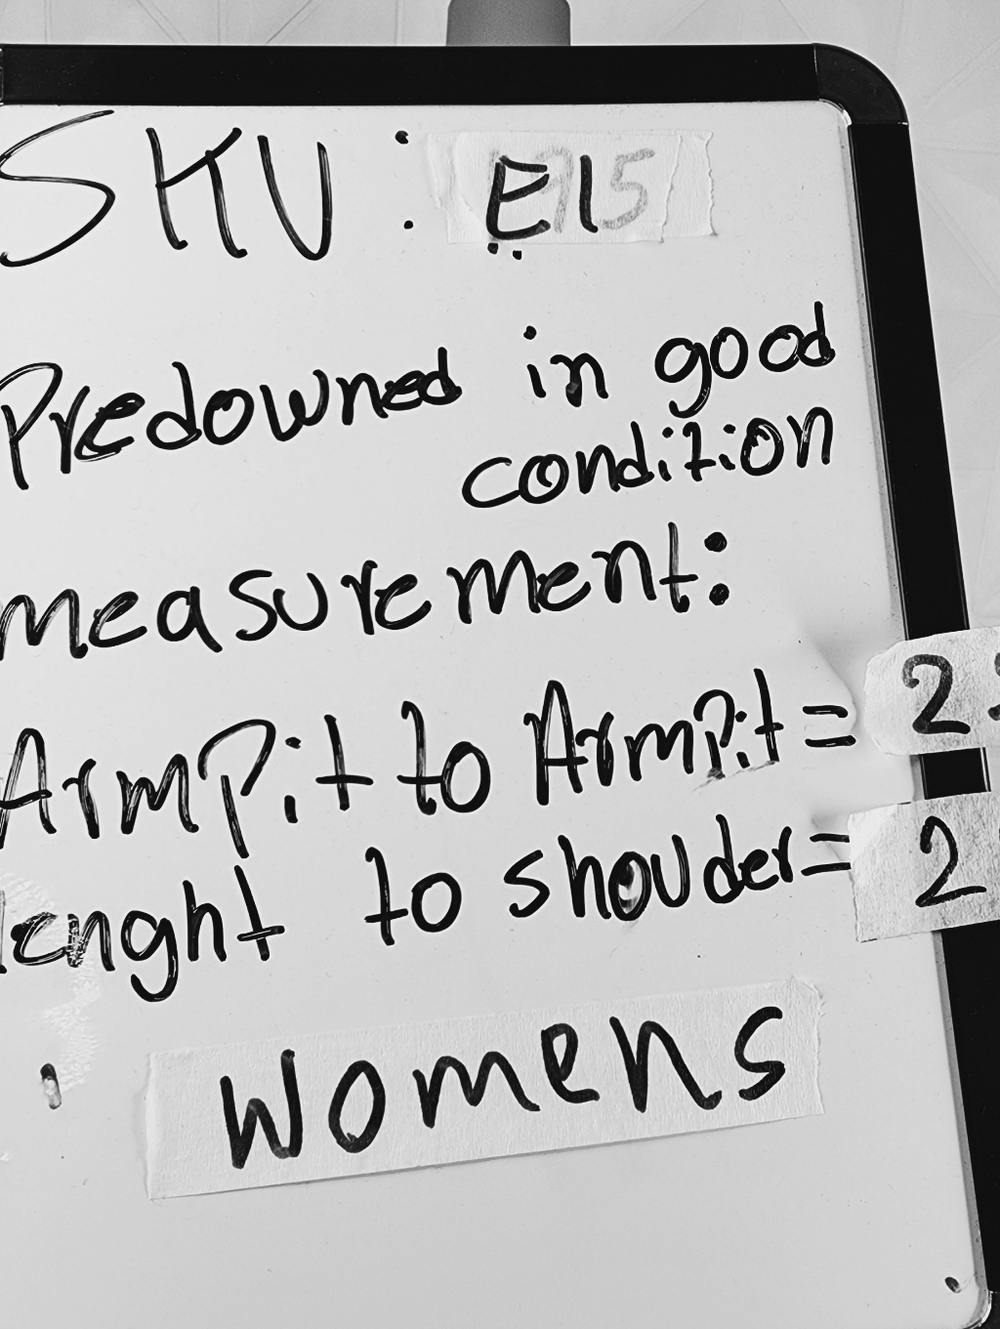 SKU: E1
Predowned in good
condition
measurement:
ArmPit to ArmPit = 2
lenght to shouder = 2
Womens